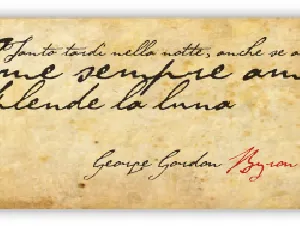 Tanto tardi nella notte, anche se a
me sempre am
plende la luna
George Gordon Byron